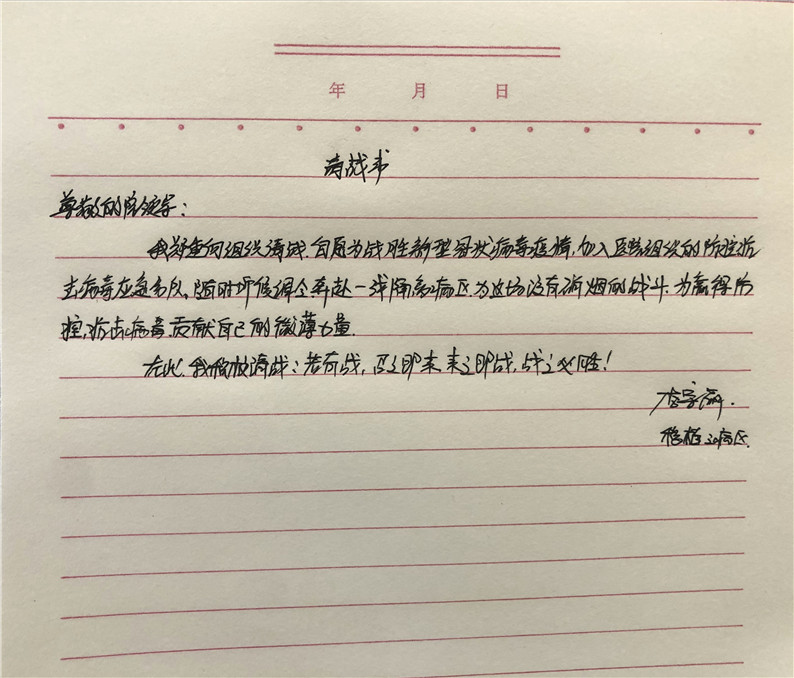 年 月 日
请战书
尊敬的院领导：
我郑重向组织请战，自愿为战胜新型冠状病毒疫情，加入医院组织的防控抗
击病毒应急部队，随时听候调令奔赴一线隔离病区，为这场没有硝烟的战斗，为赢得防
控，抗击病毒，贡献自己的微薄力量。
在此，我积极请战：若有战，召之即来，来之即战，战之必胜！
病区